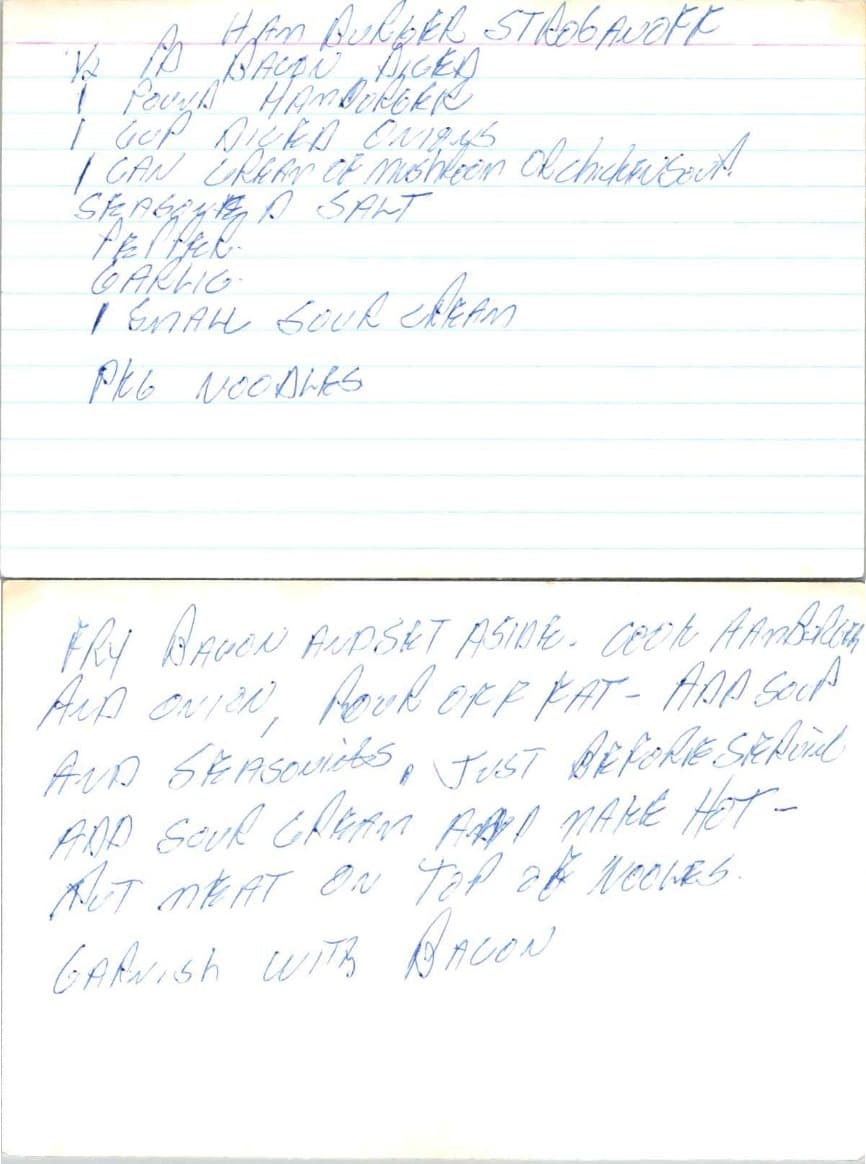 HAMBURGER STROGANOFF
1/2 PD BACON DICED
1 POUND HAMBURGER
1 CUP DICED ONIONS
1 CAN CREAM OF MUSHROOM OR chicken SOUP.
SEASONED SALT
PEPPER.
GARLIC.
1 SMALL SOUR CREAM
PKG NOODLES
FRY BACON AND SET ASIDE. COOK HAMBURGER
AND ONION, POUR OFF FAT - ADD SOUP
AND SEASONINGS. JUST BEFORE SERVING
ADD SOUR CREAM AND MAKE HOT -
PUT MEAT ON TOP OF NOODLES.
GARNISH WITH BACON